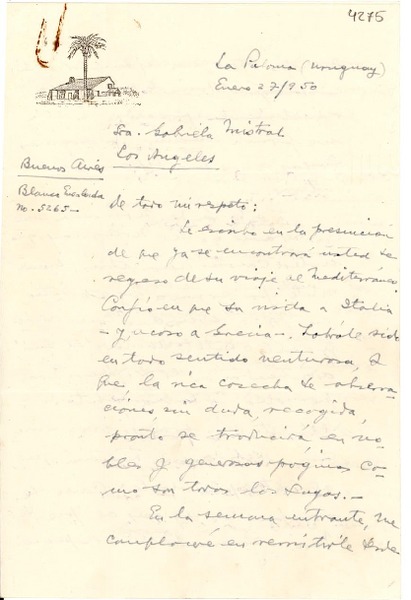 4275
La Paloma (Uruguay)
Enero 27/950
Sra. Gabriela Mistral
Los Angeles
Buenos Aires
Blanco Encalada
No. 5265 -
De todo mi respeto:
Le escribo en la presunción
de que ya se encontrará usted de
regreso de su viaje al Mediterráneo.
Confío en que su visita a Italia
- y acaso a Grecia -, habrále sido
en todo sentido venturosa, y
que, la rica cosecha de observa-
ciones, sin duda, recogida,
pronto se traducirá en no-
bles y generosas páginas co-
mo son todas las suyas. -
En la semana entrante, me
complaceré en remitirle desde